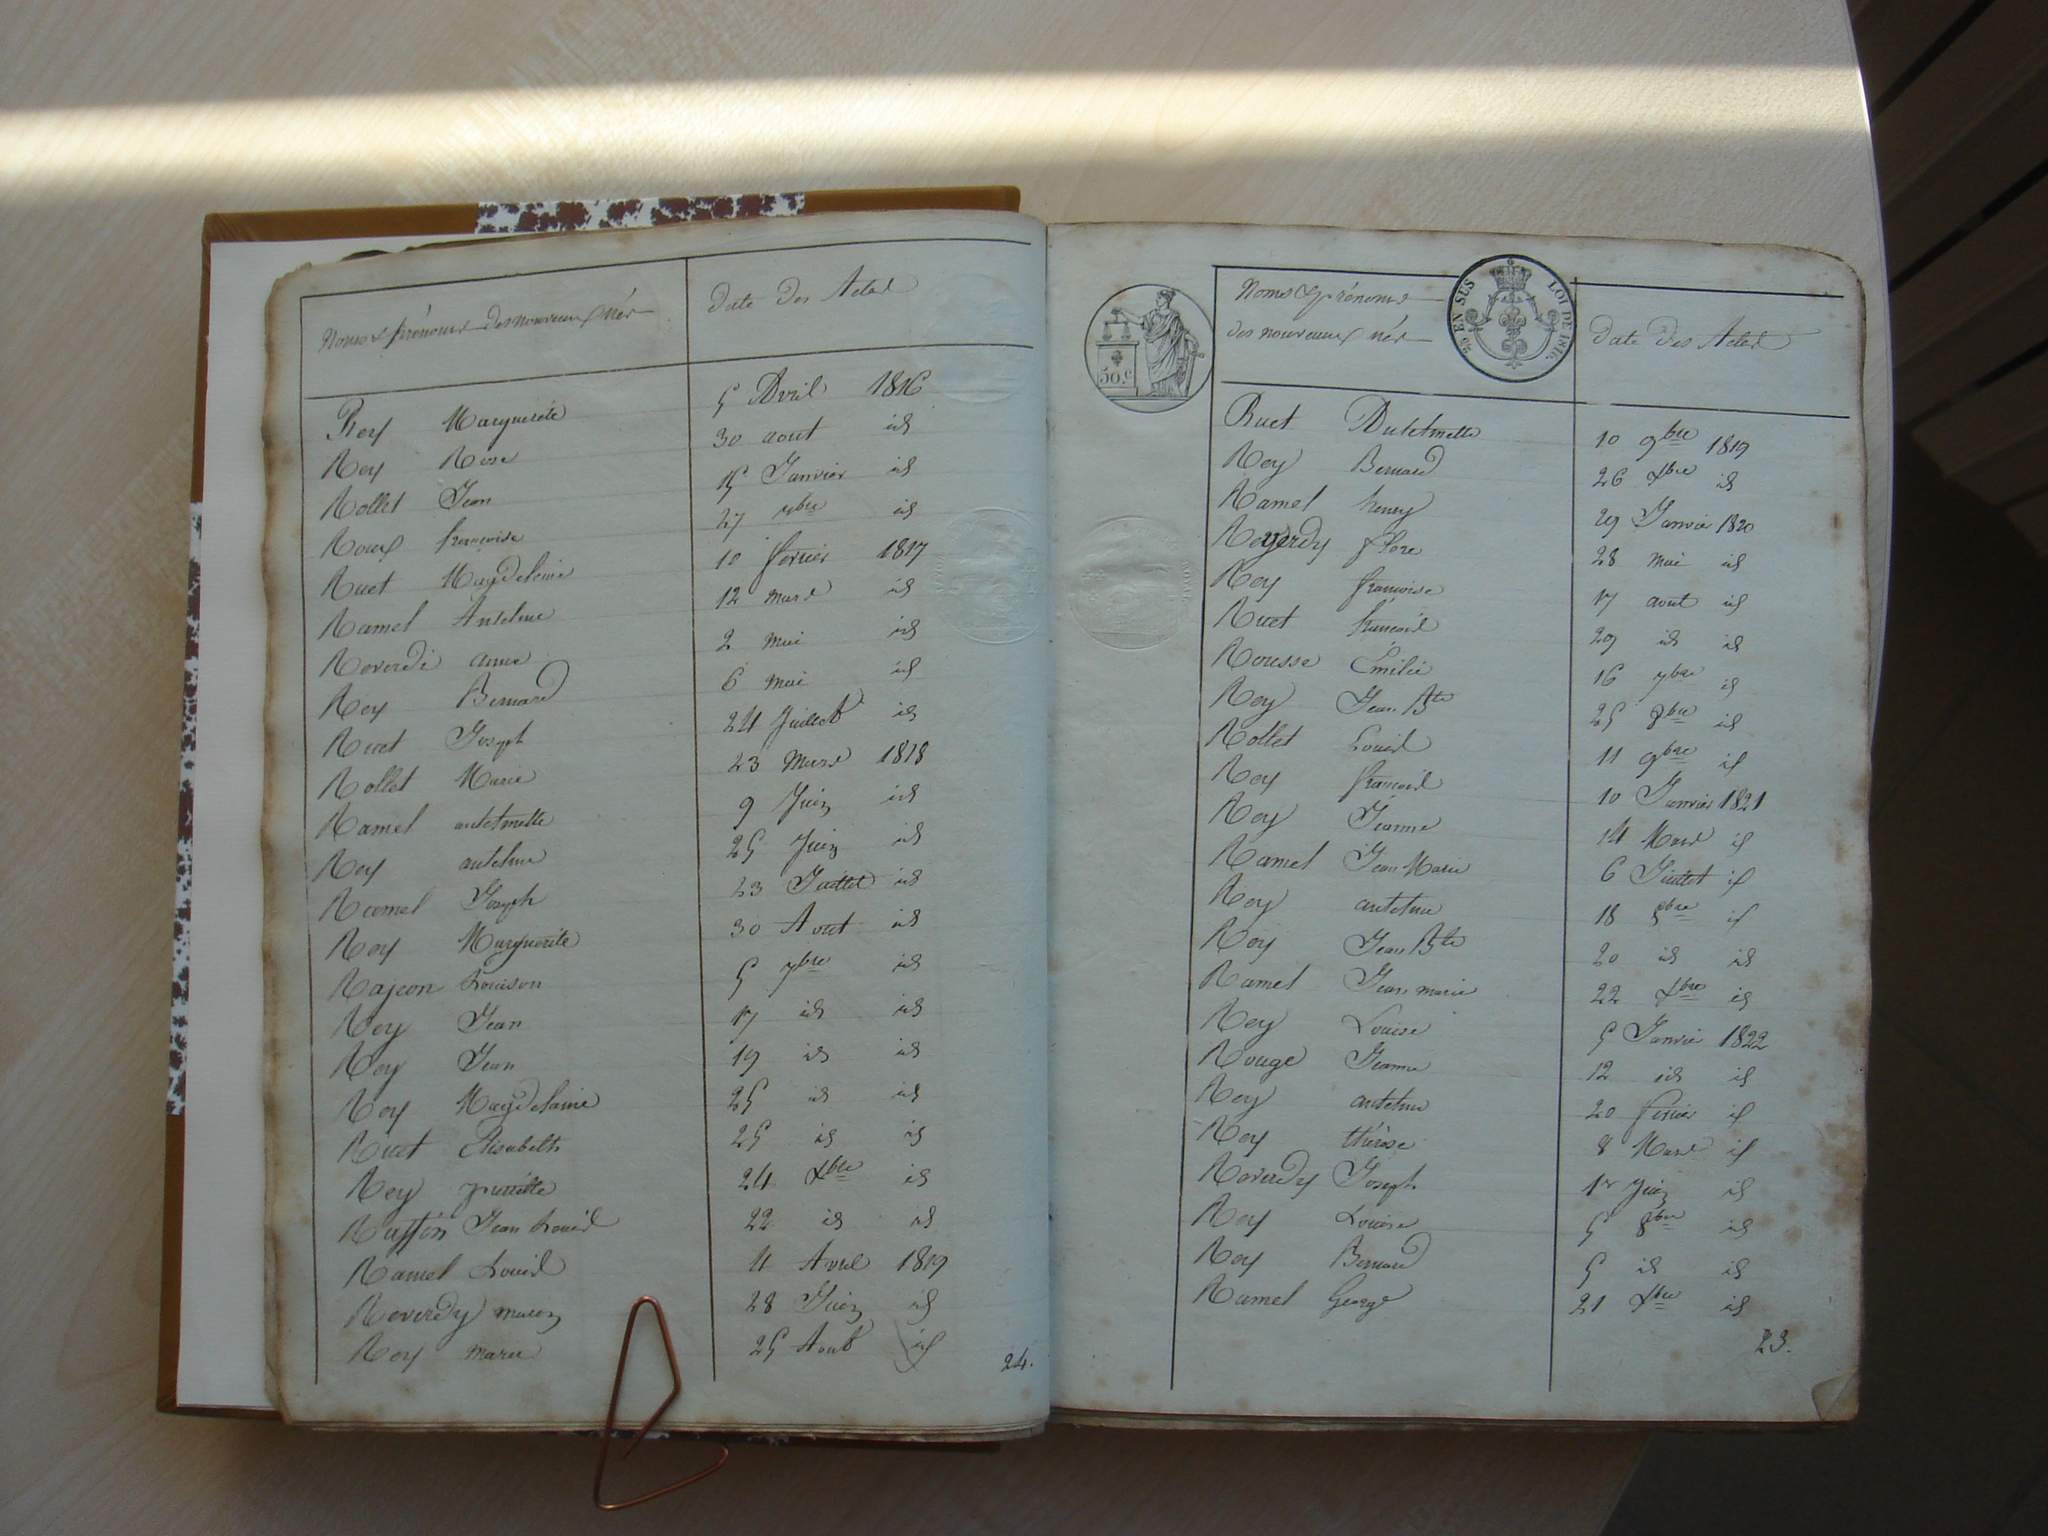 Noms & prénoms des nouveaux nés
Date Des Actes
Rey Marguerite 5 Avril 1816
Rey Rose 30 aout id
Rollet Jean 15 Janvier id
Roux françoise 27 7bre id
Ruet Magdelaine 10 fevrier 1817
Ramel Antelme 12 mars id
Reverdi anne 2 mai id
Rey Bernard 6 mai id
Ruet Joseph 24 Juillet id
Rollet Marie 23 Mars 1818
Ramel antelmette 9 Juin id
Rey antelme 25 Juin id
Ramel Joseph 23 Juillet id
Roy Marguerite 30 Aout id
Rajeon Louison 5 7bre id
Rey Jean 17 id id
Rey Jean 19 id id
Rey Magdelaine 25 id id
Ruet Elisabeth 25 id id
Rey pierrette 24 Xbre id
Ruffin Jean Louis 22 id id
Ramel Louis 11 Avril 1819
Reverdy 28 Juin id
Rey marie 25 Aout id
24.
50.c
25 EN SUS LOI DE 1816.
Noms & prénoms
des nouveaux nés
Date Des Actes
Ruet Antelmette 10 9bre 1819
Rey Bernard 26 Xbre id
Ramel henry 29 Janvier 1820
Reverdy flore 28 mai id
Rey françoise 17 aout id
Ruet françois 29 id id
Rousse Émilie 16 7bre id
Rey Jean Bte 25 8bre id
Rollet Louis 11 9bre id
Rey françois 10 Janvier 1821
Rey Jeanne 14 Mars id
Ramel Jean Marie 6 Juillet id
Rey antelme 18 8bre id
Rey Jean Bte 20 id id
Ramel Jean marie 22 Xbre id
Rey Louise 5 Janvier 1822
Rouge Jeanne 12 id id
Rey antelme 20 fevrier id
Rey thérèse 8 Mars id
Reverdy Joseph 1er Juin id
Rey Louise 5 8bre id
Rey Bernard 5 id id
Ramel George 21 Xbre id
23.